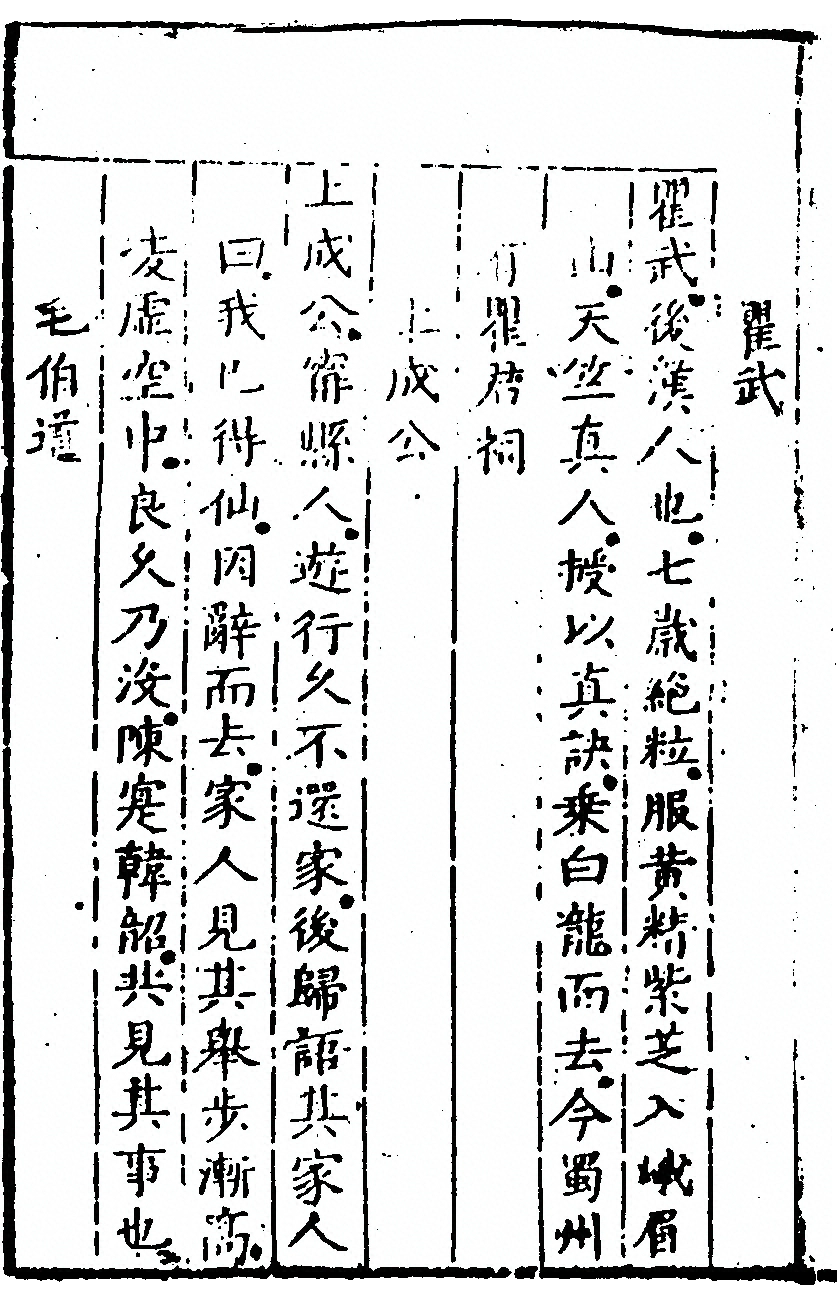 瞿武
瞿武後漢人也七歲絕粒服黃精紫芝入峨眉
山天竺真人授以真訣乘白龍而去今蜀州
有瞿君祠
上成公
上成公甯縣人遊行久不還家後歸語其家人
曰我已得仙因辭而去家人見其舉步漸高
凌虛空中良久乃沒陳寔韓韶共見其事也
毛伯道